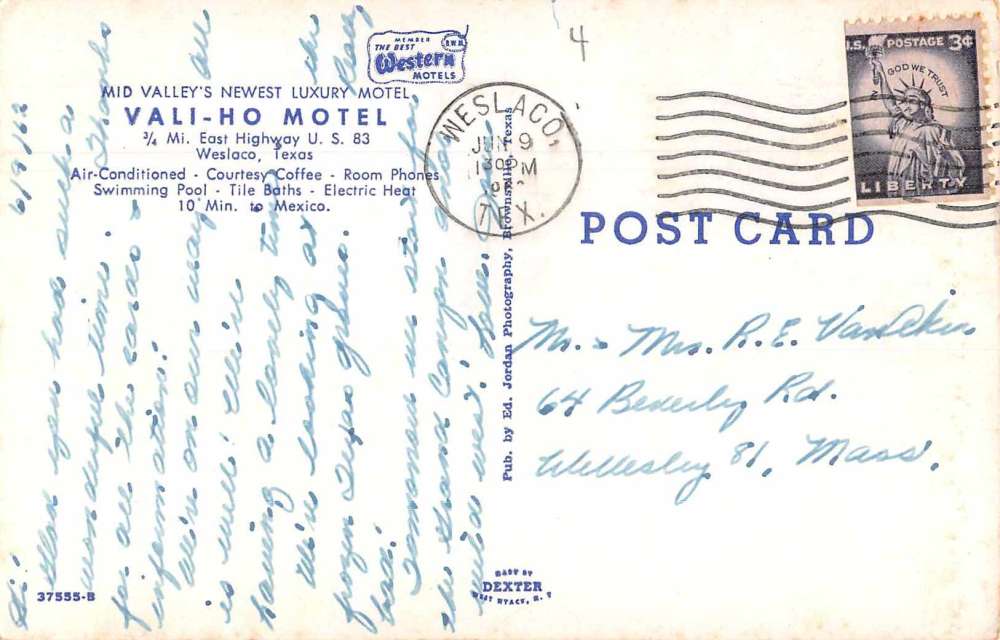 MEMBER
THE BEST B.W.M.
Western
MOTELS
MID VALLEY'S NEWEST LUXURY MOTEL
VALI-HO MOTEL
¾ Mi. East Highway U. S. 83
Weslaco, Texas
Air-Conditioned - Courtesy Coffee - Room Phones
Swimming Pool - Tile Baths - Electric Heat
10 Min. to Mexico.
6/9/62
Hi!
Glad you had such a
wonderful time. Thanks
for all the cards &
information.
We're on our way & all
is well! We're
having a lovely time.
We're looking at the
frozen Texas grove. Really
bad!
Tomorrow we start for
the Grand Canyon &
wild west! Love,
37555-B
Pub. by Ed. Jordan Photography, Brownsville, Texas
MADE BY
DEXTER
WEST NYACK, N. Y.
4
WESLACO,
JUN 9
130 PM
TEX.
U.S. POSTAGE 3¢
IN GOD WE TRUST
LIBERTY
POST CARD
Mr. & Mrs. R. E.
64 Beverly Rd.
Wellesley 81, Mass.